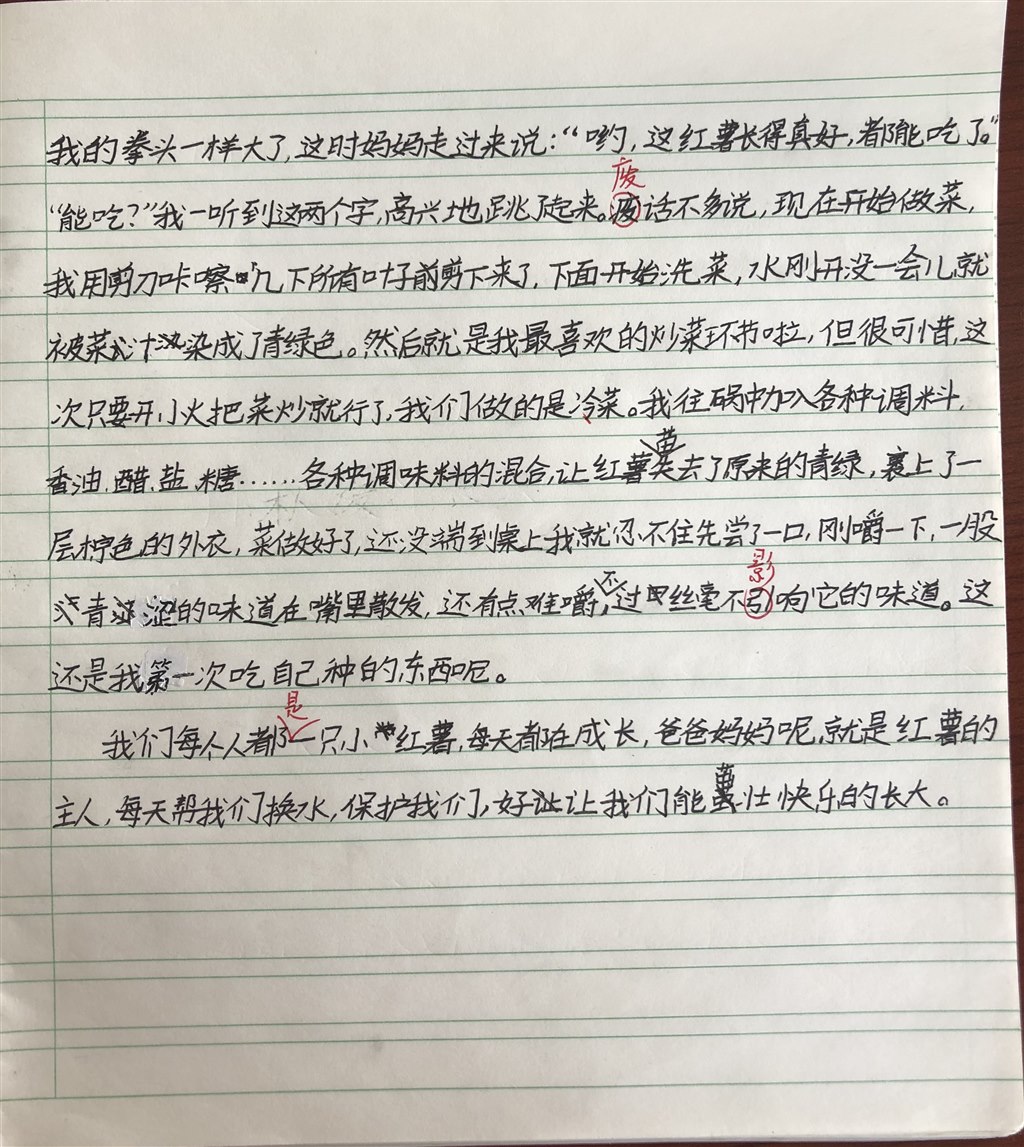 我的拳头一样大了,这时妈妈走过来说:“哟,这红薯长得真好,都能吃了。”
废
“能吃?”我一听到这两个字,高兴地跳了起来。废话不多说,现在开始做菜,
我用剪刀咔嚓几下所有叶子前剪下来了,下面开始洗菜,水刚开没一会儿就
被菜汁染成了青绿色。然后就是我最喜欢的炒菜环节啦,但很可惜,这
次只要开小火把菜炒就行了,我们做的是冷菜。我往锅中加入各种调料,
香油、醋、盐、糖……各种调味料的混合,让红薯失去了原来的青绿,裹上了一
层棕色的外衣,菜做好了,还没端到桌上我就忍不住先尝了一口,刚嚼一下,一股
影
青涩的味道在嘴里散发,还有点难嚼,不过丝毫不引响它的味道。这
还是我第一次吃自己种的东西呢。
是
我们每个人都一只小红薯,每天都在成长,爸爸妈妈呢,就是红薯的
主人,每天帮我们换水,保护我们,好让我们能茁壮快乐的长大。